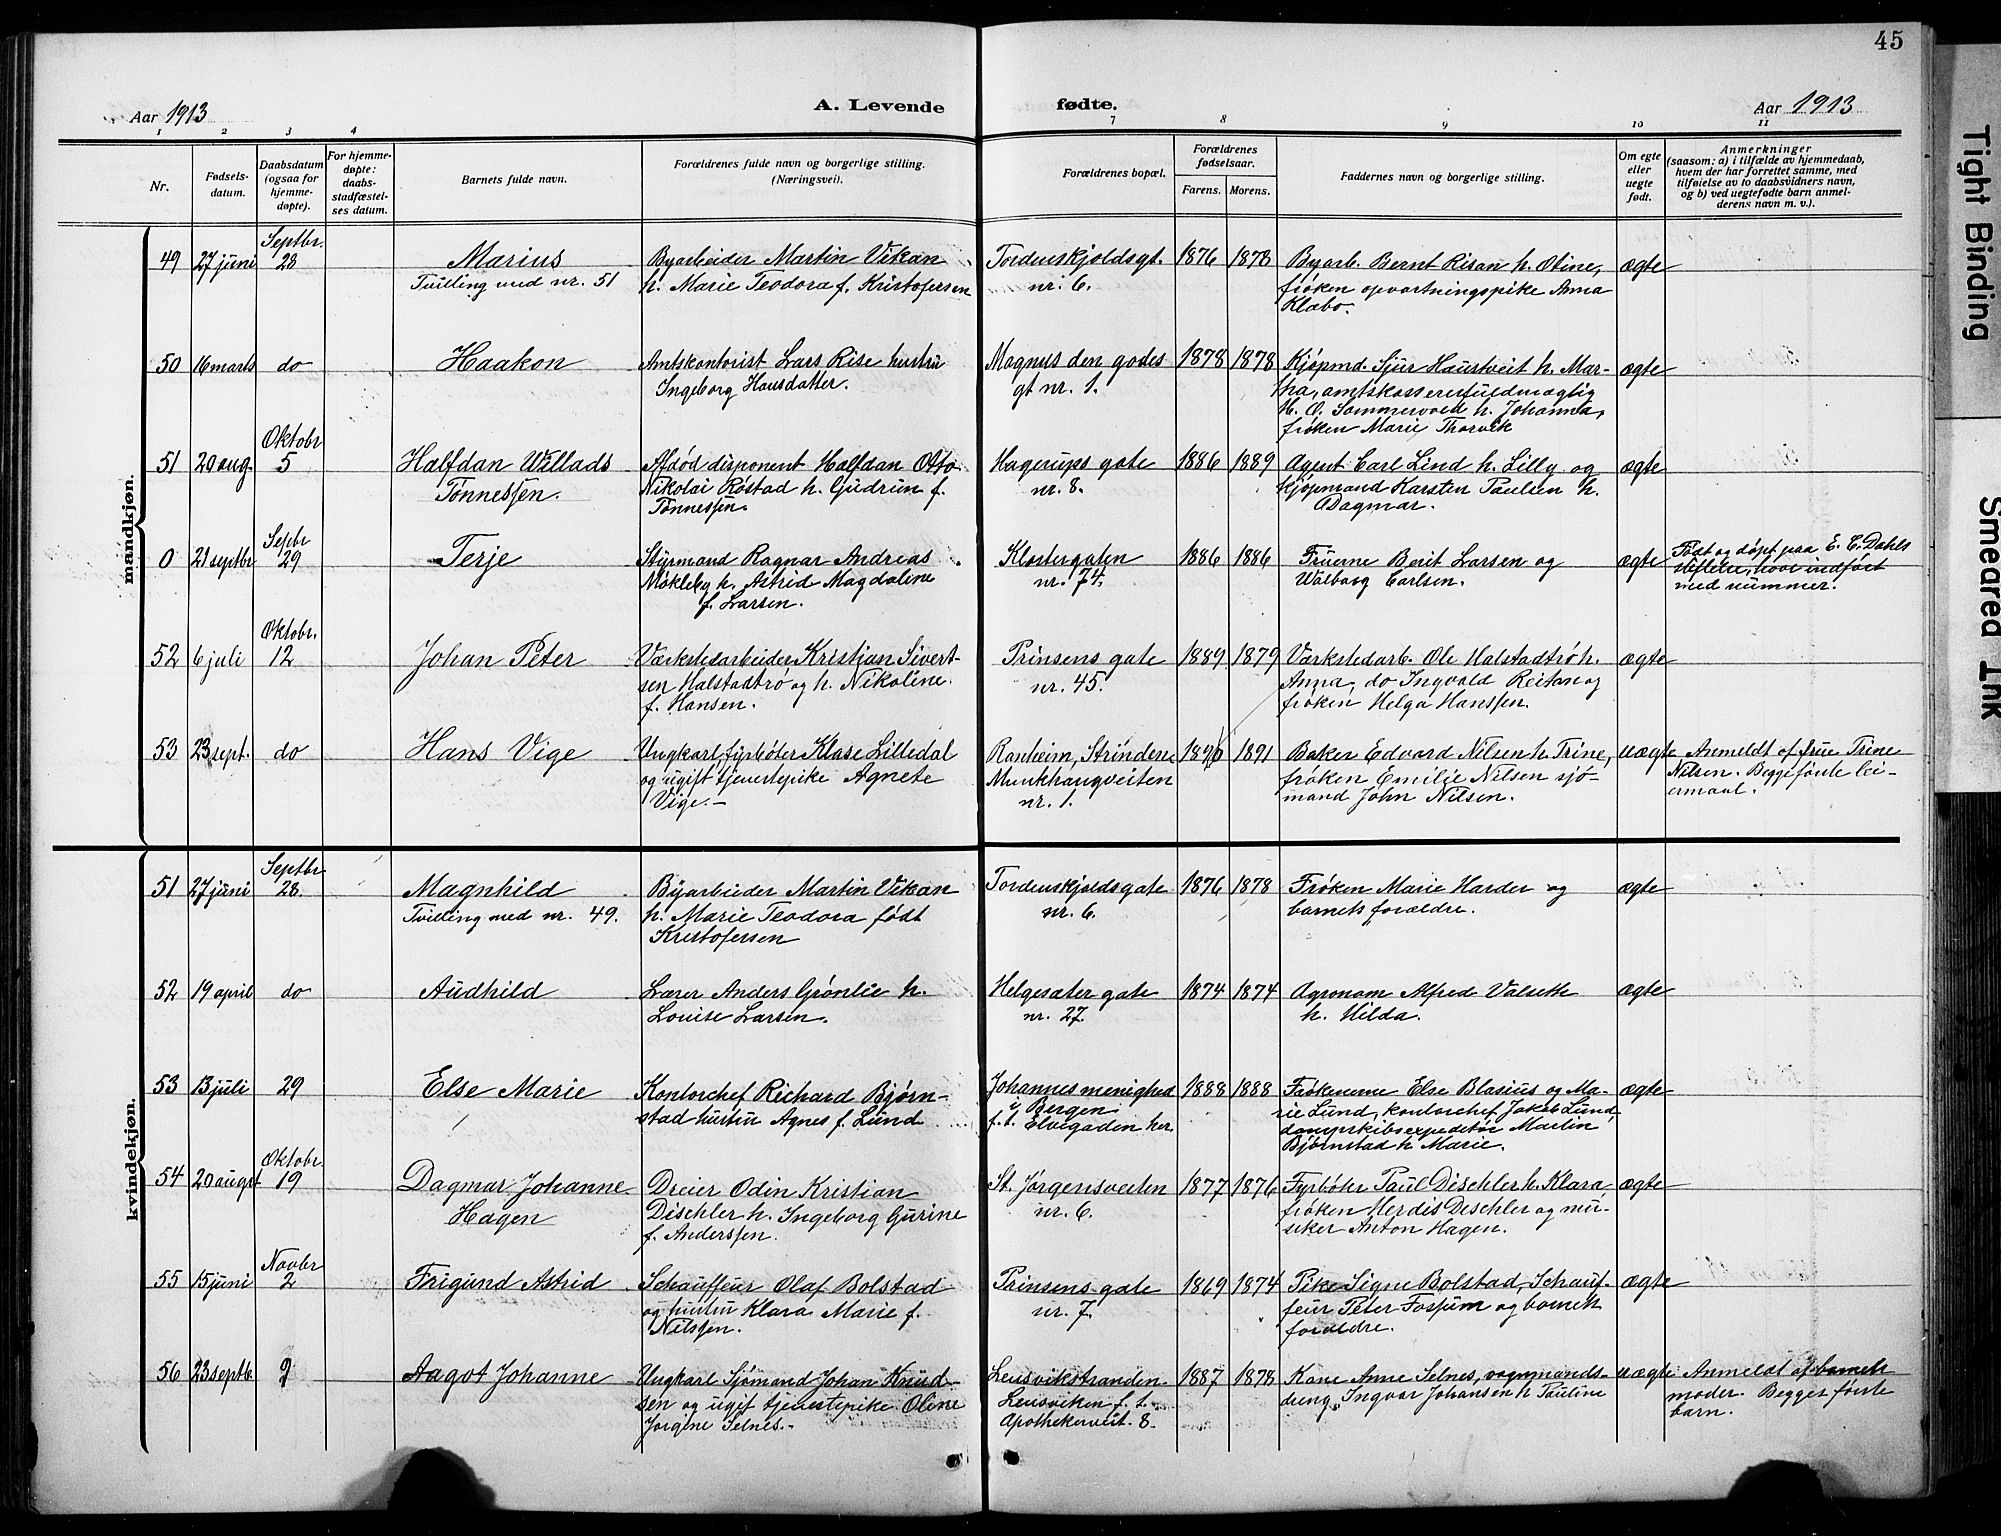 45
Aar 1913
A. Levende
fødte.
Aar 1913
1 2 3 4 7 8 9 10 11
Nr.
Fødsels-
datum.
Daabsdatum
(ogsaa for
hjemme-
døpte).
For hjemme-
døpte:
daabs-
stadfæstel-
ses datum.
Barnets fulde navn.
Forældrenes fulde navn og borgerlige stilling.
(Næringsvei).
Forældrenes bopæl.
Forældrenes
fødselsaar.
Farens. Morens.
Faddernes navn og borgerlige stilling.
Om egte
eller
uegte
født.
Anmerkninger
(saasom: a) i tilfælde av hjemmedaab,
hvem der har forrettet samme, med
tilføielse av to daabsvidners navn,
og b) ved uegtefødte barn anmel-
derens navn m. v.).
mandkjøn.
Septbr.
49 27 juni 28 Marius Byarbeider Martin Vikan Tordenskjoldsgt. 1876 1878 Byarb. Bernt Risan h. Otine, ægte
Tvilling med nr. 51 h. Marie Teodora f. Kristofersen nr. 6. frøken opvartningspike Anna
Klæbo.
50 16 marts do Haakon Amtskontorist Lars Rise hustru Magnus den godes 1878 1878 Kjøpmd. Sjur Haustveit h. Mar- ægte
Ingeborg Hansdatter. gt nr. 1. tha, amtskassererfuldmægtig
H. O. Sommervold h. Johanna,
frøken Marie Thorvik
Oktobr
51 20 aug. 5 Halfdan Willads Afdød disponent Halfdan Otto Hagerups gate 1886 1889 Agent Carl Lind h. Lilly og ægte
Tønnessen. Nikolai Røstad h. Gudrun f. nr. 8. kjøpmand Karsten Paulsen h.
Tønnessen. Dagmar.
Sepbr
0 21 septbr 29 Terje Styrmand Ragnar Andreas Klostergaten 1886 1886 Fruerne Berit Larsen og ægte Født og døpt paa E. C. Dahls
Miskleby h. Astrid Magdaline nr. 74. Walborg Carlsen. stiftelse, hvor indført
f. Larsen. med nummer.
Oktobr.
52 6 juli 12 Johan Peter Værkstedarbeider Kristjan Sivert- Prinsens gate 1889 1879 Værkstedarb. Ole Halstadtrø h. ægte
sen Halstadtrø og h. Nikoline nr. 45. Anna, do Ingvald Reitan og
f. Hansen. frøken Helga Hanssen.
53 23 sept. do Hans Vige Ungkarl fyrbøter Klase Lilledal Ranheim, Strinden 1890 1891 Baker Edvard Nilsen h. Trine, uægte Anmeldt af frue Trine
og ugift tjenestepike Agnete Munkhaugveiten frøken Emilie Nilsen sjø- Nilsen. Begges første lei-
Vige.- nr. 1. mand John Nilsen. ermaal.
kvindekjøn.
Septbr
51 27 juni 28. Magnhild Byarbeider Martin Vikan Tordenskjoldsgate 1876 1878 Frøken Marie Harder og ægte
Tvilling med nr. 49. h. Marie Teodora født nr. 6. barnets forældre.
Kristofersen
52 19 april do Audhild Lærer Anders Grønlie h. Helgesæter gate 1874 1874 Agronom Alfred Valseth ægte
Louise Larsen. nr. 27. h. Hilda.
53 13 juli 29 Else Marie Kontorchef Richard Bjørn- Johannes menighed 1888 1888 Frøknerne Else Blasius og Ma- ægte
stad hustru Agnes f. Lund i Bergen rie Lund, kontorchef Jakob Lund,
f. t. Elvegaden her. dampskibsexpeditør Martin
Bjørnstad h Marie.
Oktobr.
54 20 augst 19 Dagmar Johanne Dreier Odin Kristian St. Jørgensveiten 1877 1876 Fyrbøter Paul Dischler h. Klara, ægte
Hagen Dischler h. Ingeborg Gurine nr. 6. frøken Herdis Dischler og mu-
f. Anderssen. siker Anton Hagen.
Novbr
55 15 juni 2 Frigund Astrid Schauffeur Olaf Bolstad Prinsens gate 1869 1874 Pike Signe Bolstad, Schauf- ægte
og hustru Klara Marie f. nr. 7. feur Peter Fossum og barnets
Nilssen. forældre.
56 23 septb. 9 Aagot Johanne Ungkarl Sjømand Johan Knud- Lensvikstranden 1887 1878 Kone Anne Selnes, vognmands- uægte Anmeldt af barnets
sen og ugift tjenestepike Oline Lensviken f. t. dreng Ingvar Johansen h Pauline moder. Begges første
Jørgine Selnes.- Apothekerveit. 8. barn.
Tight Binding
Smeared Ink